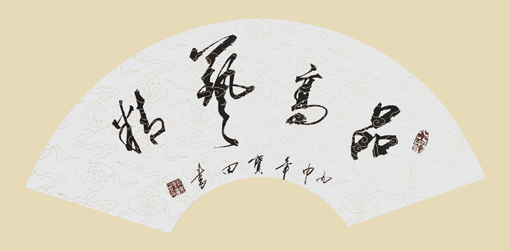 品高藝精
丙申年寶田書